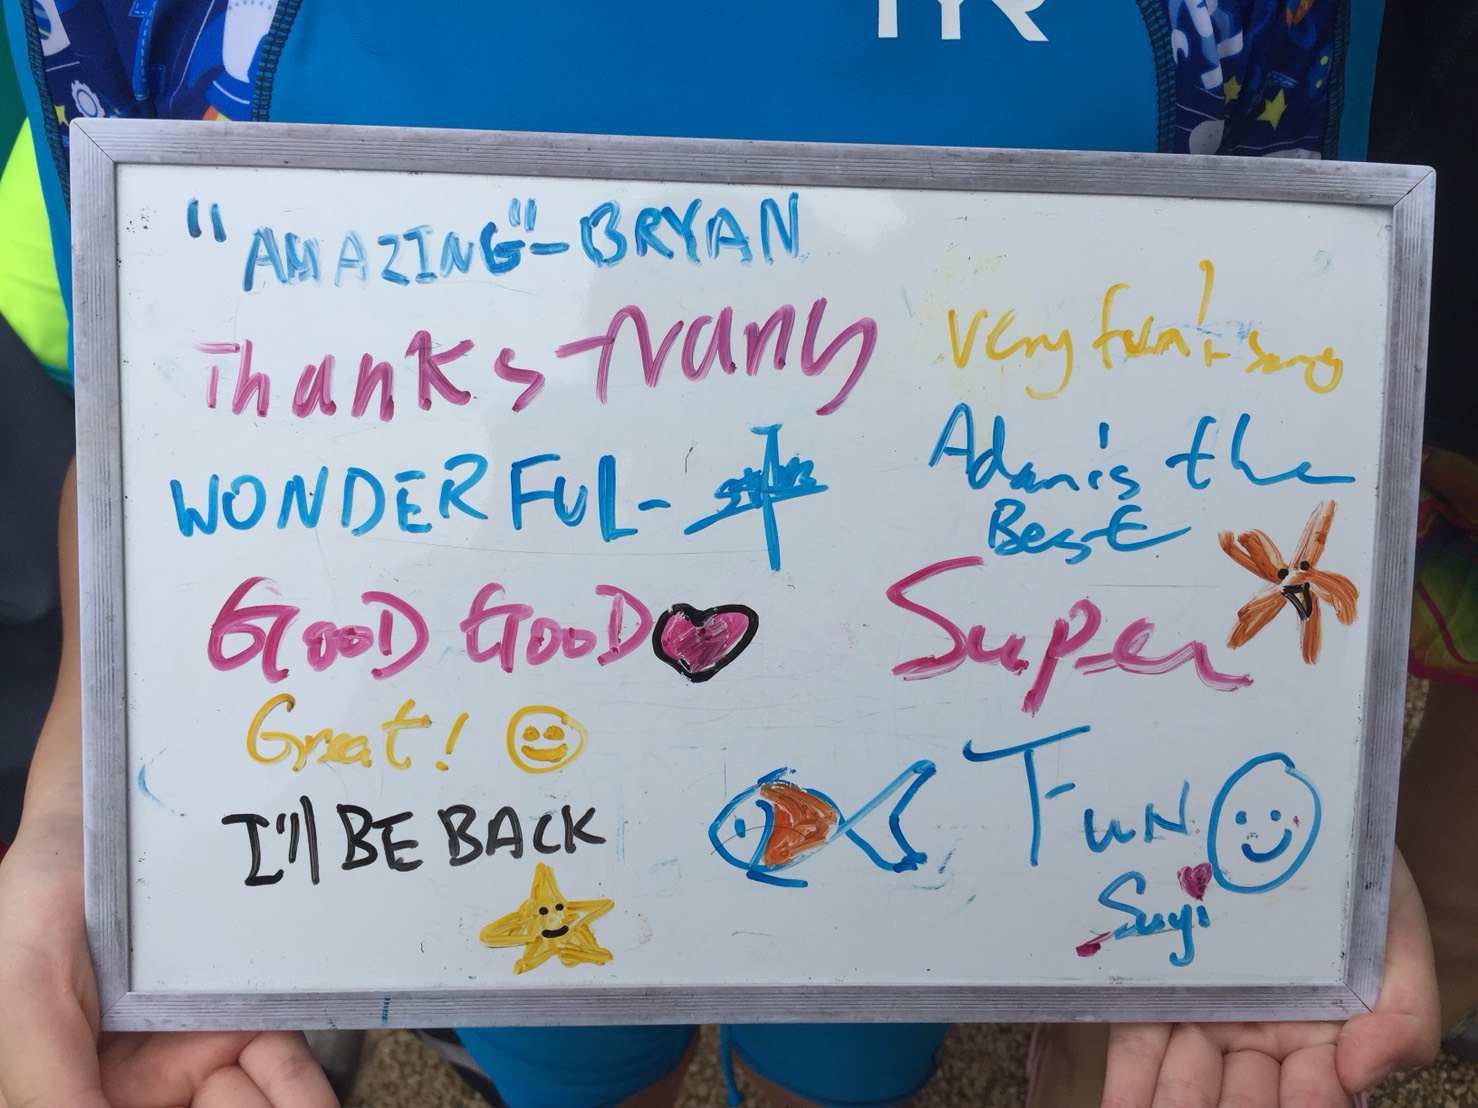 TYR
"AMAZING" - BRYAN
Thanks - Nany
Very fun!
WONDERFUL -
Adam's the
Best
GOOD GOOD
Super
Great!
FUN
I'll BE BACK
Suyi